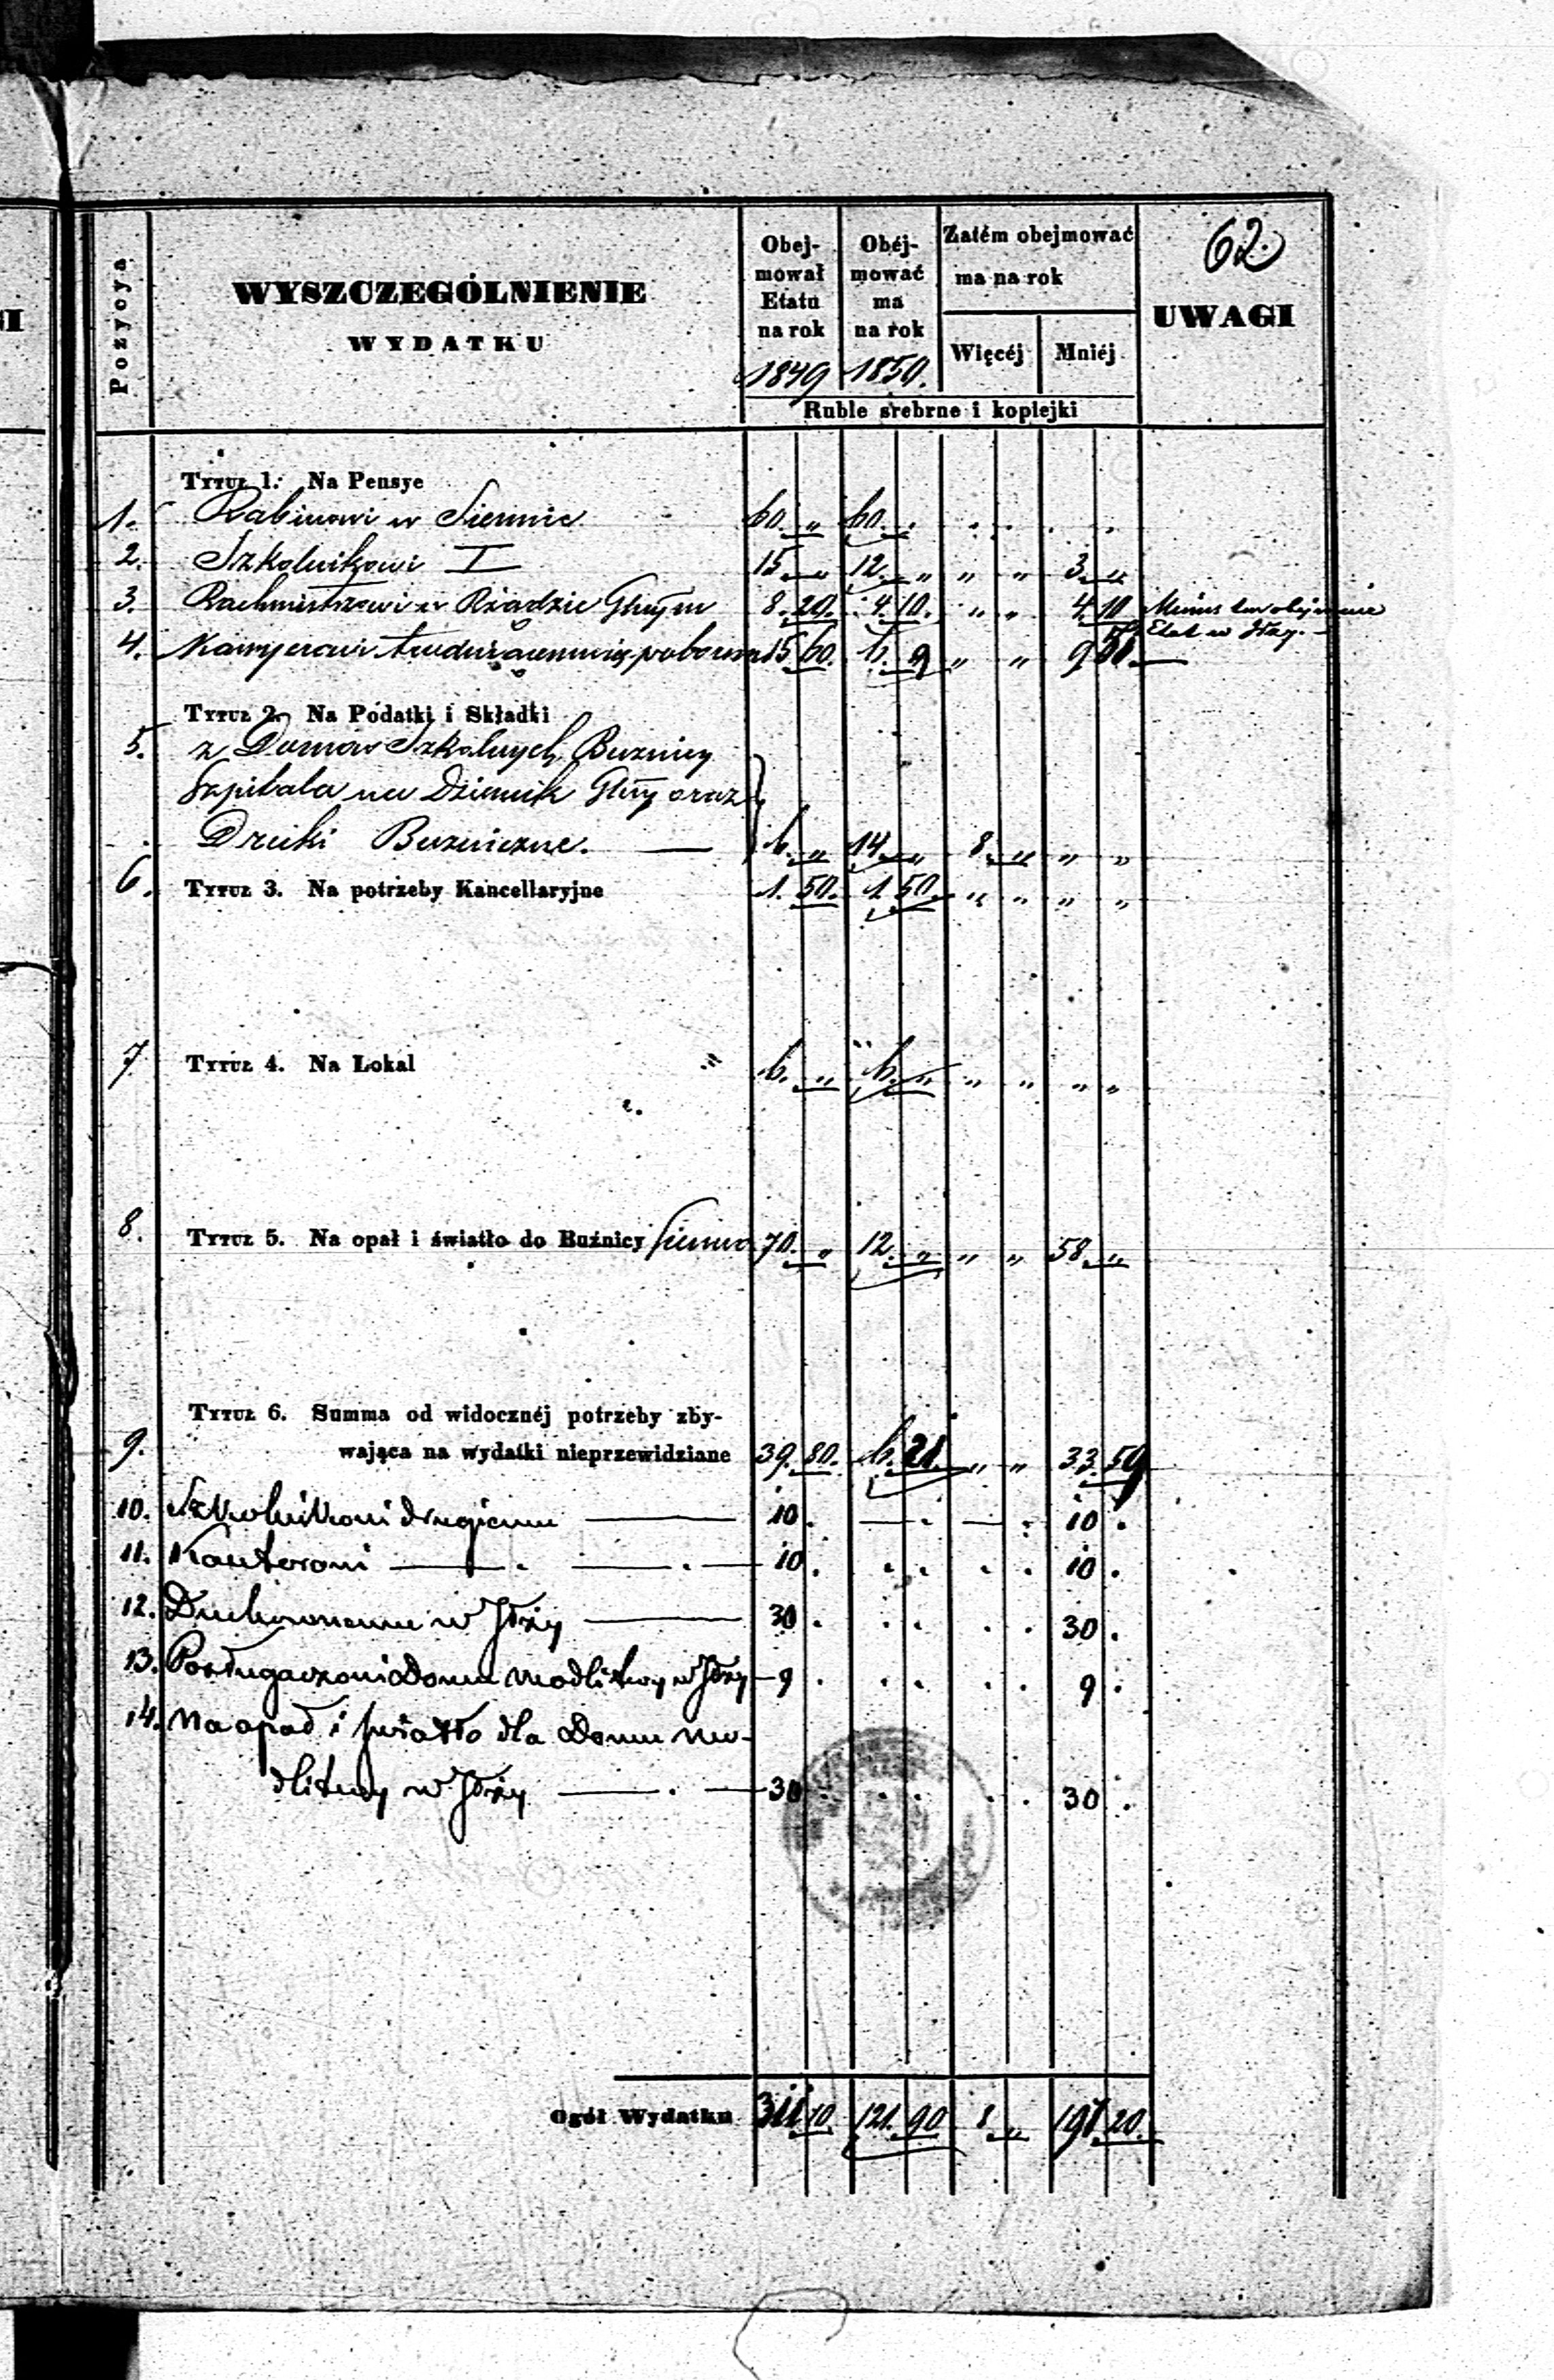 62.
Pozycya
WYSZCZEGÓLNIENIE
WYDATKU
Obej-
mował
Etatu
na rok
1849
Obéj-
mować
ma
na rok
1850.
Zatém obejmować
ma na rok
Więcéj
Mniéj
UWAGI
Ruble srebrne i kopiejki
Tytuł 1. Na Pensye
1. Rabinowi w Siennie 60. „ 60. .
2. Szkolnikowi I 15 „ 12 „ „ „ 3 „
3. Rachmistrzowi w Rządzie Głnym 8. 20. 4. 10. „ „ 4 10
Etat w Iłży.
4. Kassyerowi trudniącemu się poborem 15 60. 6. 9 „ „ 9
Tytuł 2. Na Podatki i Składki
5. z Domów Szkolnych, Buznicy
Szpitala na Dziennik Głny oraz
Druki Buzniczne. 6. „ 14 „ 8 „ „ „
6. Tytuł 3. Na potrzeby Kancellaryjne 1. 50. 1. 50. „ „ „ „
7 Tytuł 4. Na Lokal „ 6. „ 6. „ „ „ „ „
8. Tytuł 5. Na opał i światło do Buźnicy Sienno 70. „ 12. „ „ „ 58 „
Tytuł 6. Summa od widocznéj potrzeby zby-
9. wająca na wydatki nieprzewidziane 39. 80. 6. 21. „ „ 33. 59
10. Szkolnikowi drugiemu 10 . — . — . 10 .
11. Kantorowi 10 . . . . . 10 .
12. Duchownemu w Iłży 30 . . . . . 30 .
13. Posługaczowi Domu modlitwy w Iłży 9 . . . . . 9 .
14. Na opał i światło dla Domu mo-
dlitwy w Iłży 30 . . . . . 30 .
Ogół Wydatku 311 10 121. 90 8 „ 197 20.